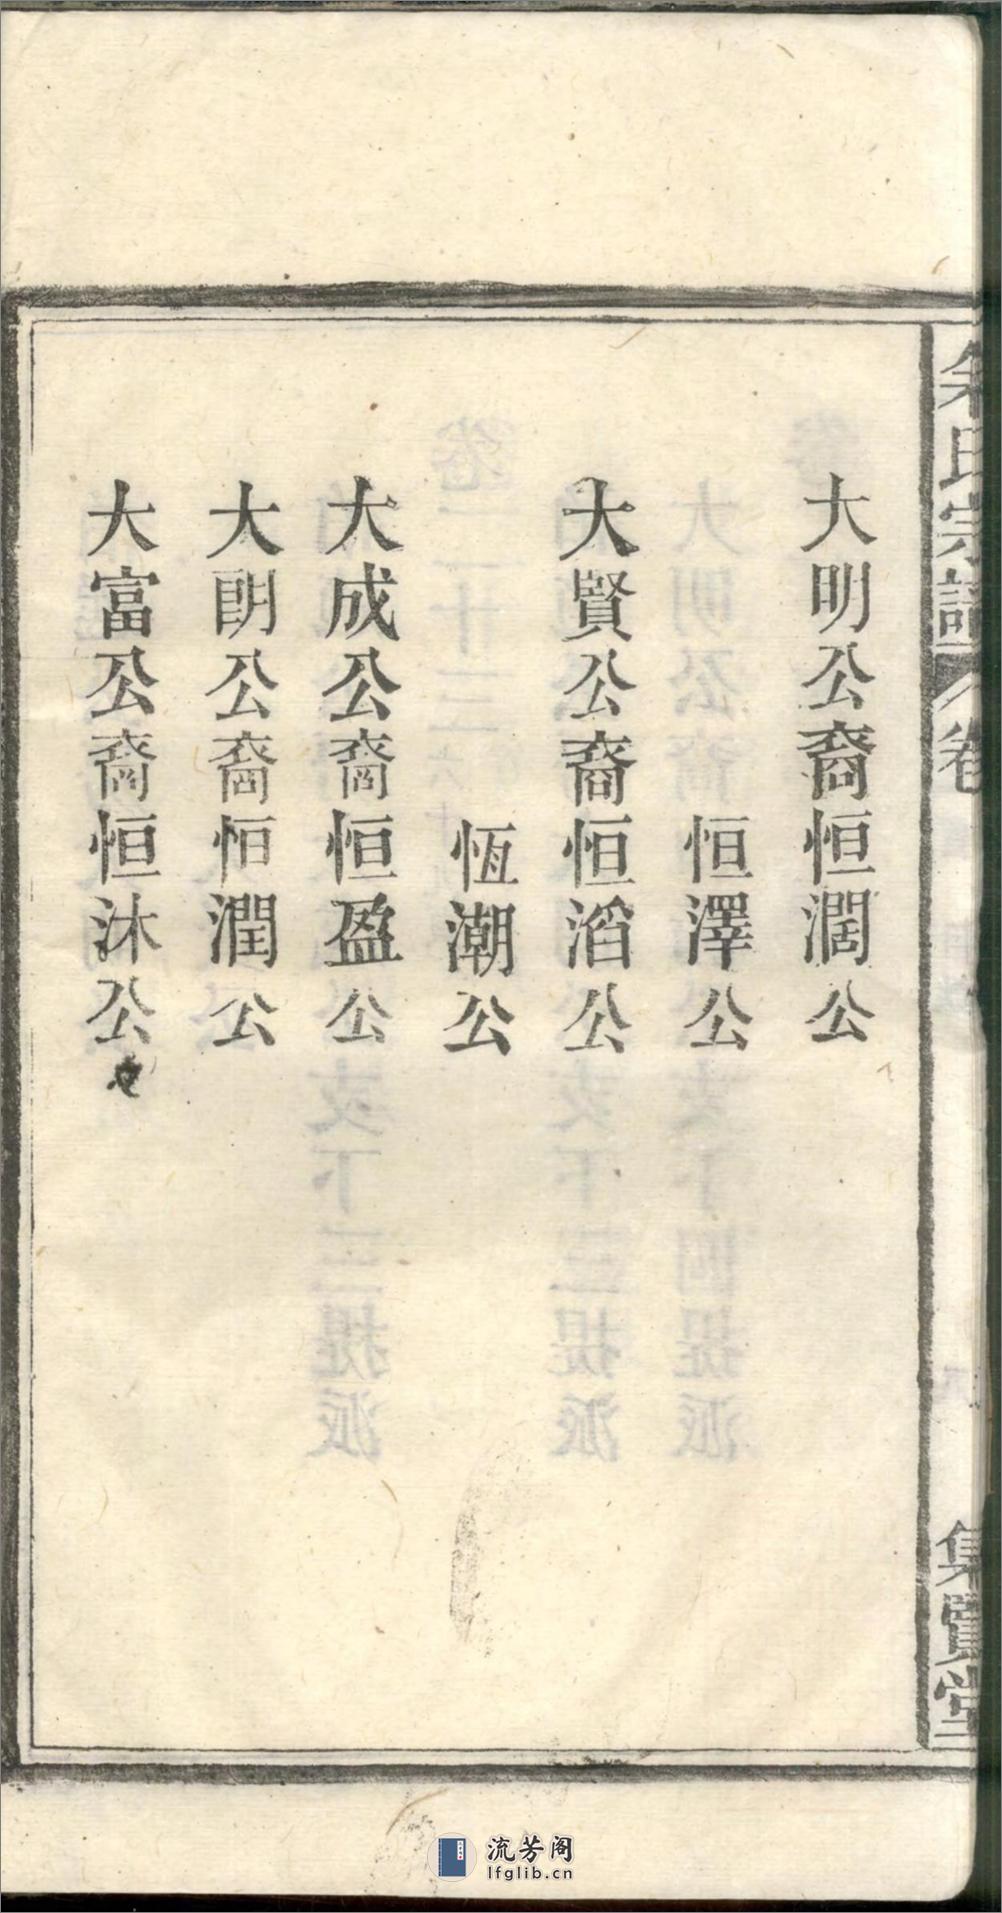 朱氏宗譜
卷
集賢堂
大明公裔恒濶公
恒澤公
大賢公裔恒滔公
恆潮公
大成公裔恒盈公
大朗公裔恒潤公
大富公裔恒沐公
流芳阁
lfglib.cn